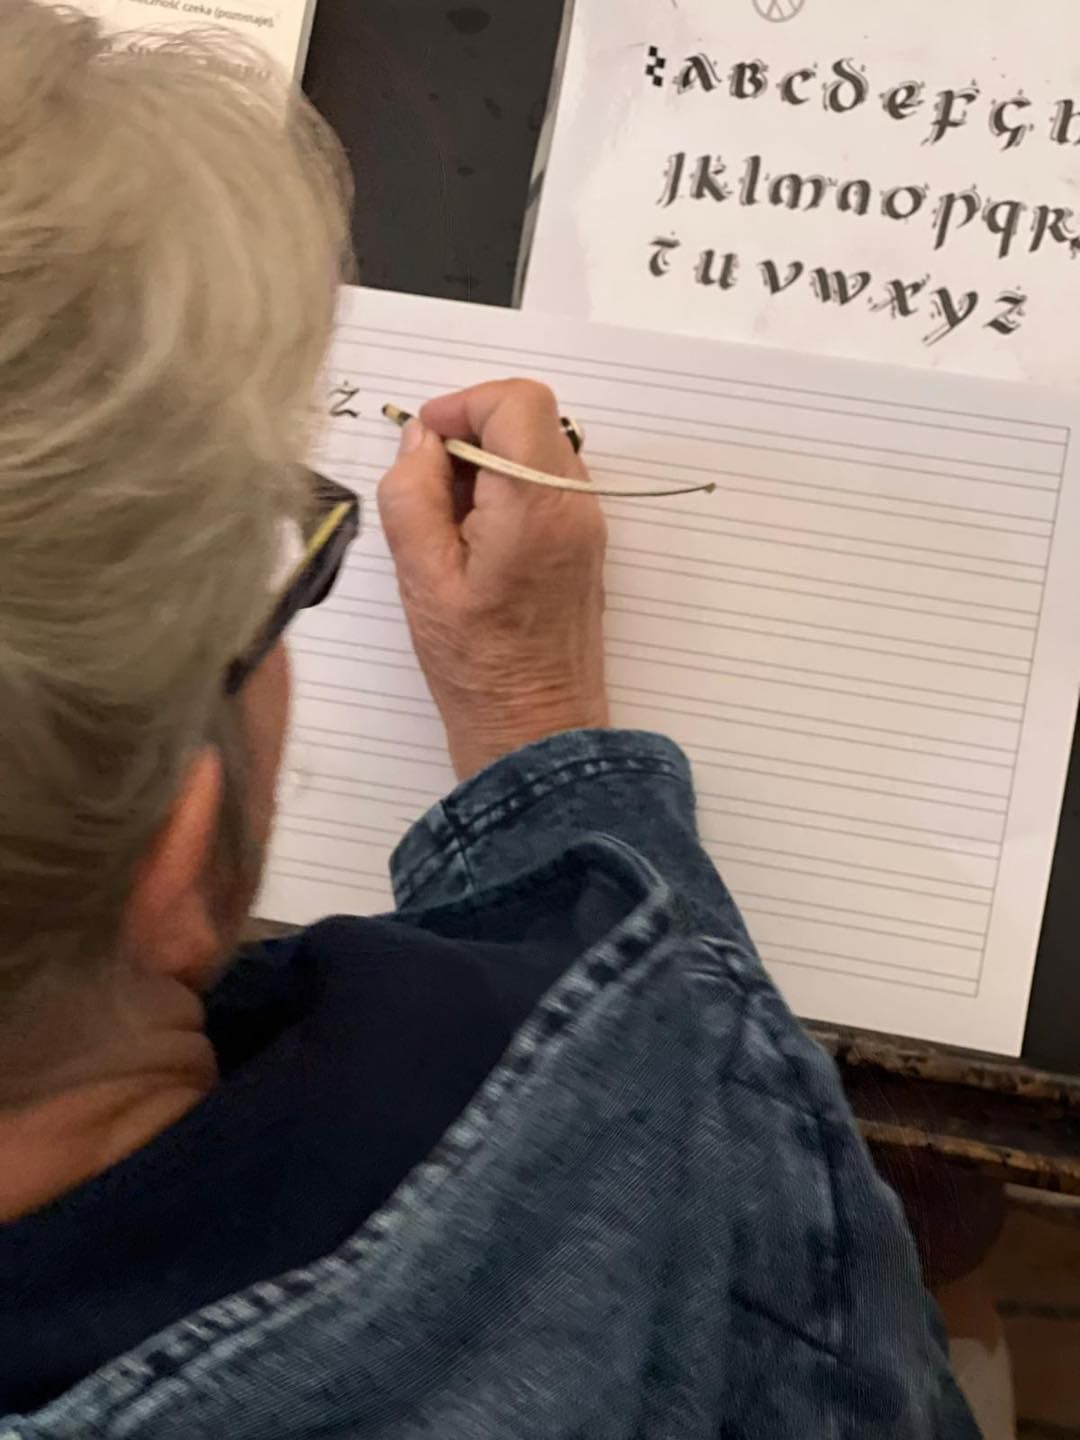 czeka (pozostaje).
A B C D E F G H
J K l m n o p q R
T u v w x y z
Ż